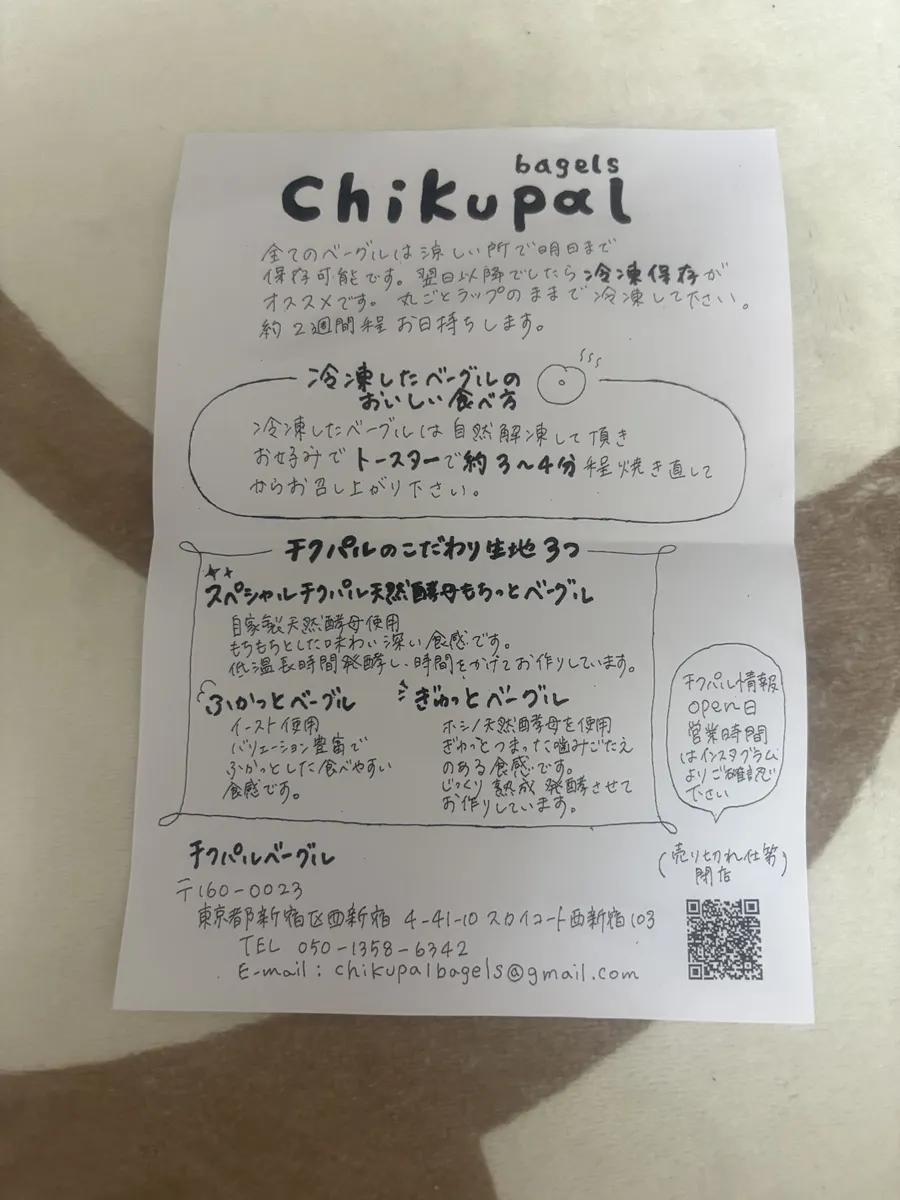 bagels
Chikupal
全てのベーグルは涼しい所で明日まで
保存可能です。翌日以降でしたら冷凍保存が
オススメです。丸ごとラップのままで冷凍して下さい。
約2週間程お日持ちします。
冷凍したベーグルの
おいしい食べ方
冷凍したベーグルは自然解凍して頂き
お好みでトースターで約3〜4分程焼き直して
からお召し上がり下さい。
チクパルのこだわり生地3つ
スペシャルチクパル天然酵母もちっとベーグル
自家製天然酵母使用
もちもちとした味わい深い食感です。
低温長時間発酵し、時間をかけてお作りしています。
ふかっとベーグル
イースト使用
バリエーション豊富で
ふかっとした食べやすい
食感です。
ぎゅっとベーグル
ホシノ天然酵母を使用
ぎゅっとつまった噛みごたえ
のある食感です。
じっくり熟成発酵させて
お作りしています。
チクパル情報
open日
営業時間
はインスタグラム
よりご確認
下さい
(売り切れ次第)
閉店
チクパルベーグル
〒160-0023
東京都新宿区西新宿 4-41-10 スカイコート西新宿103
TEL 050-1358-6342
E-mail : chikupalbagels@gmail.com